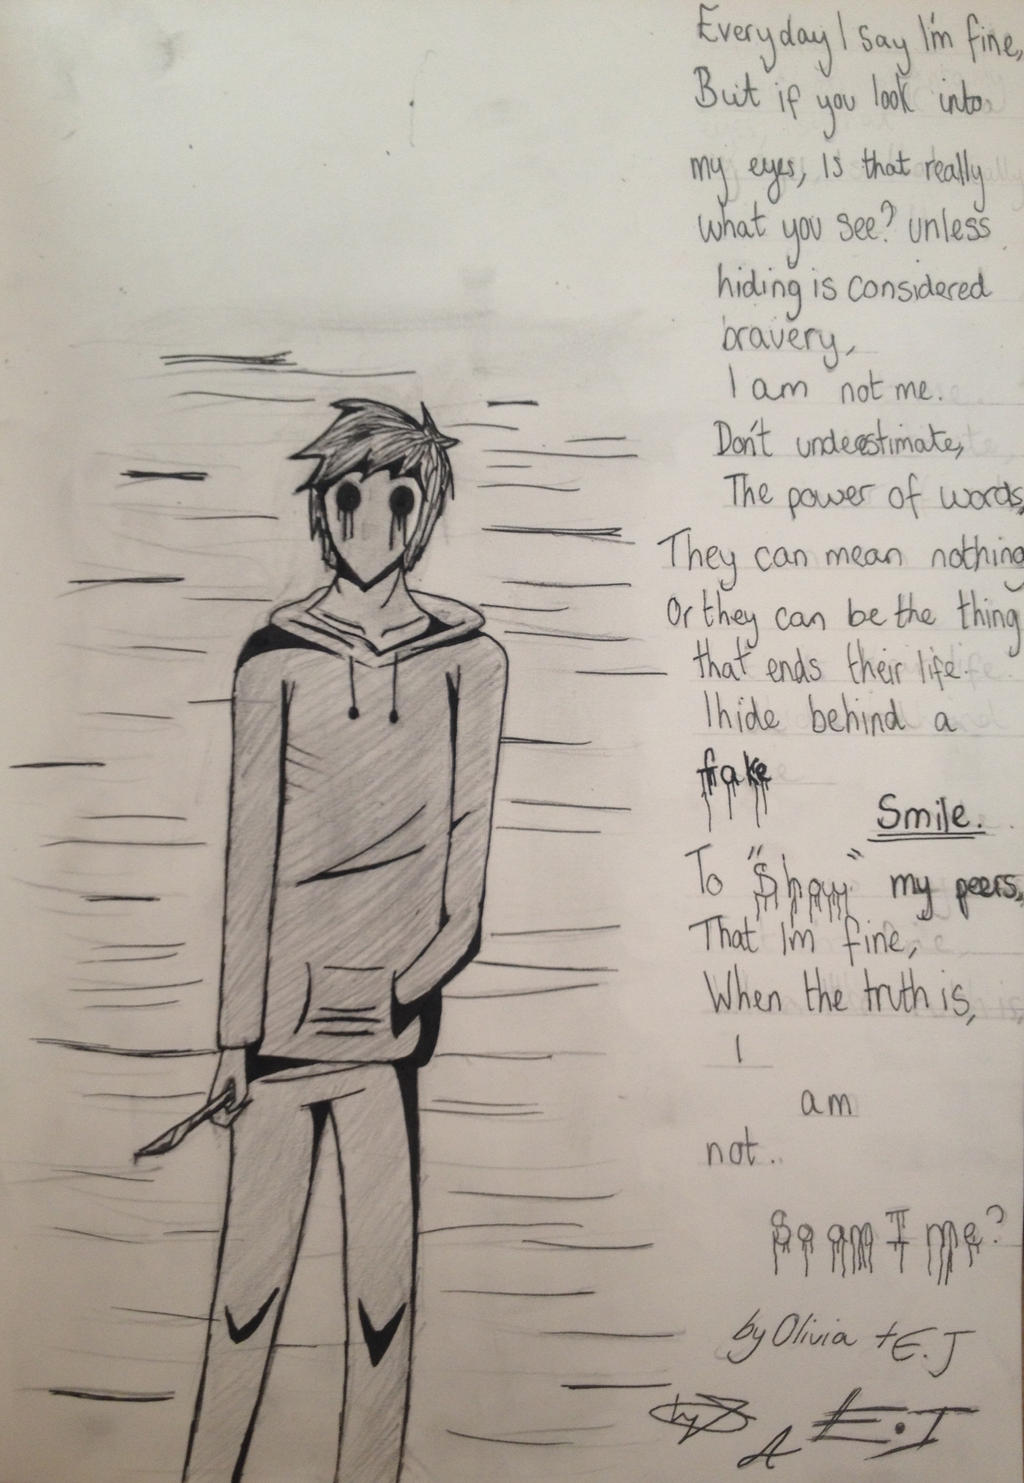 Everyday I say I'm fine,
But if you look into
my eyes, Is that really
what you see? unless
hiding is considered
bravery,
I am not me.
Don't underestimate,
The power of words,
They can mean nothing
Or they can be the thing
that ends their life.
I hide behind a
fake
Smile.
To "Show" my peers,
That I'm fine,
When the truth is,
I
am
not.
So am I me?
by Olivia + E.J
E.J